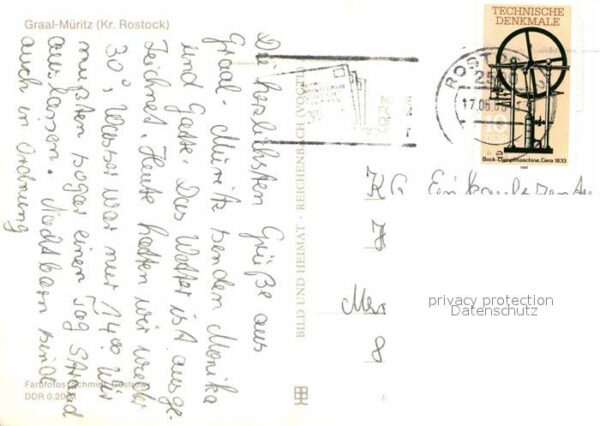 Graal-Müritz (Kr. Rostock)
Die herzlichsten Grüße aus
Graal-Müritz senden Monika
und Gatte. Das Wetter ist ausge-
zeichnet. Heute hatten wir wieder
30°, Wasser war nur 14°. Wir
mußten sogar einen Tag Strand
auslassen. Nachbarn sind
auch in Ordnung
Farbfotos Schmidt, Güstrow
DDR 0.20
BILD UND HEIMAT · REICHENBACH (VOGTL)
TECHNISCHE
DENKMALE
10
Bock-Dampfmaschine, Gera 1833
ROSTO
25
17.06.86
KG
8
privacy protection
Datenschutz